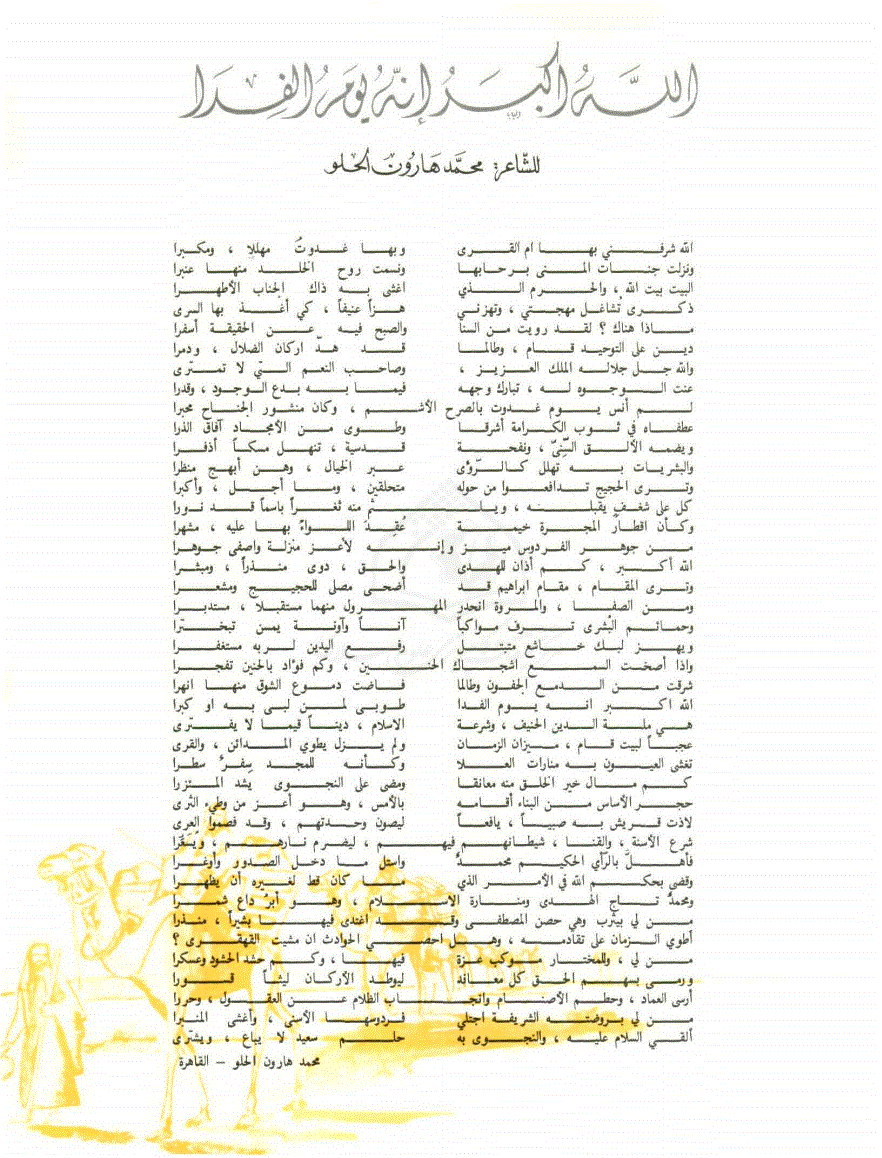 اللـه اكبـر إنه يوم الفدا
للشاعر: محمد هارون الحلو
الله شرفني بها ام القرى وبها غدوتُ مهللا ، ومكبرا
ونزلت جنات المنى برحابها ونسمت روح الخلد منها عنبرا
البيت بيت الله ، والحرم الذي اغشى به ذاك الجناب الأطهرا
ذكرى تُشاغل مهجتي ، وتهزني هزاً عنيفاً ، كي أغذ بها السرى
ماذا هناك ؟ لقد رويت من السنا والصبح فيه عن الحقيقة أسفرا
دين على التوحيد قام ، وطالما قد هدّ اركان الضلال ، ودمرا
والله جل جلاله الملك العزيز ، وصاحب النعم التي لا تمترى
عنت الوجوه له ، تبارك وجهه فيما به بدع الوجود ، وقدرا
لم أنس يوم غدوت بالصرح الأشم ، وكان منشور الجناح محبرا
عطفاه في ثوب الكرامة أشرقا وطوى من الأمجاد آفاق الذرا
ويضمه الألق السَّنِيّ ، ونفحة قدسية ، تنهل مسكاً أذفرا
والبشريات به تهلل كالرّؤى عبر الخيال ، وهن أبهج منظرا
وترى الحجيج تدافعوا من حوله متحلقين ، وما أجل ، وأكبرا
كل على شغفٍ يقبله ، ويلثم منه ثغراً باسماً قد نورا
وكأن اقطارُ المجرة خيمة عُقِد اللواءُ بها عليه ، مشهرا
من جوهر الفردوس ميز وإنه لأعز منزلة واصفى جوهرا
الله أكبر ، كم أذان للهدى والحق ، دوى منذراً ، ومبشرا
وترى المقام ، مقام ابراهيم قد أضحى مصلى للحجيج ومشعرا
ومن الصفا ، والمروة انحدر المهرول منهما مستقبلا ، مستدبرا
وحمائم البُشرى ترف مواكباً آناً وآونة يمسن تبخترا
ويهز لبك خاشع متبتل رفع اليدين لربه مستغفرا
واذا أصخت السمع اشجاك الحنين ، وكم فؤاد بالحنين تفجرا
شرقت من الدمع الجفون وطالما فاضت دموع الشوق منها انهرا
الله اكبر انه يوم الفدا طوبى لمن لبى به او كبرا
هي ملة الدين الحنيف ، وشرعة الاسلام ، ديناً قيما لا يفترى
عجباً لبيت قام ، ميزان الزمان ولم يزل يطوي المدائن ، والقرى
تغشى العيون به منارات العلا وكأنه للمجد سِفرٌ سطرا
كم مال خير الخلق منه معانقا ومضى على النجوى يشد المئزرا
حجر الأساس من البناء أقامه بالأمس ، وهو أعز من وطيء الثرى
لاذت قريش به صبياً ، يافعاً ليصون وحدتهم ، وقد فصموا العرى
شرع الأسنة ، والقنا ، شيطانهم فيهم ، ليضرم نارهم ، ويسعّرا
فأهلَّ بالرأي الحكيم محمدٌ واستل ما دخل الصدور وأوغرا
وقضى بحكم الله في الأمر الذي ما كان قط لغيره أن يظهرا
ومحمدٌ تاج الهدى ومنارة الاسلام ، وهو أبرُ داع شمرا
من لي بيثرب وهي حصن المصطفى وقد اغتدى فيها بشيراً ، منذرا
أطوي الزمان على تقادمه ، وهل احصي الحوادث ان مشيت القهقرى ؟
من لي ، وللمختار موكب عزة فيها ، وكم حشد الحشود وعسكرا
ورمى بسهم الحق كل معاند ليوطد الأركان ليثاً قسورا
أرسى العماد ، وحطم الأصنام وانجاب الظلام عن العقول ، وحررا
من لي بروضته الشريفة اجتلي فردوسها الأسنى ، وأغشى المنبرا
ألقي السلام عليه ، والنجوى به حلم سعيد لا يباع ، ويشترى
محمد هارون الحلو – القاهرة